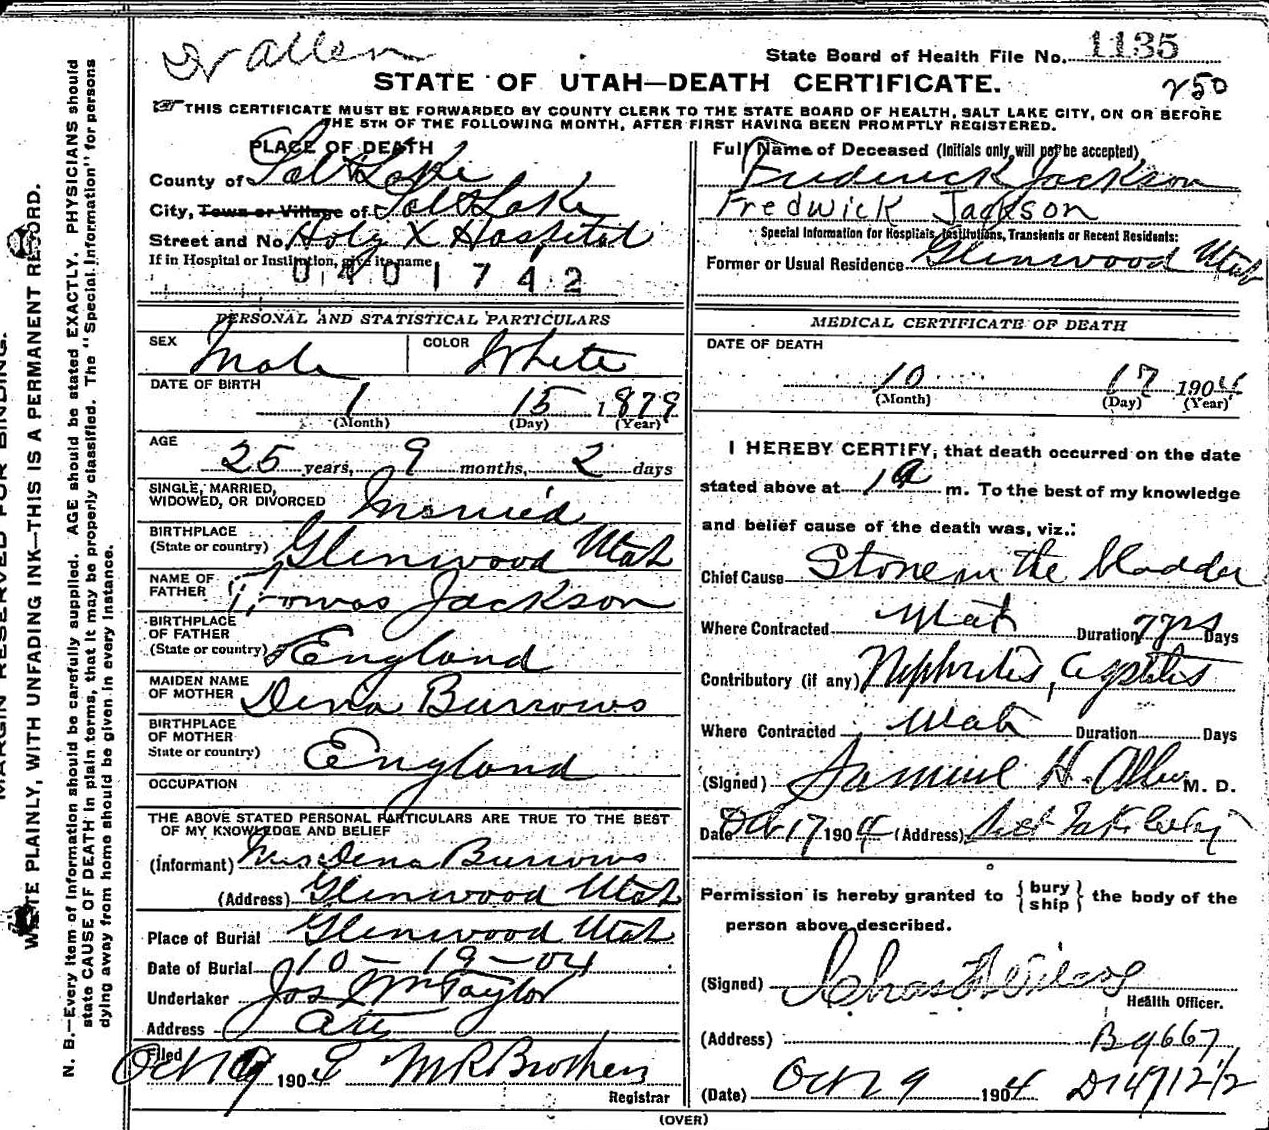 Dr Allen
State Board of Health File No. 1135
STATE OF UTAH—DEATH CERTIFICATE.
250
THIS CERTIFICATE MUST BE FORWARDED BY COUNTY CLERK TO THE STATE BOARD OF HEALTH, SALT LAKE CITY, ON OR BEFORE
THE 5TH OF THE FOLLOWING MONTH, AFTER FIRST HAVING BEEN PROMPTLY REGISTERED.
PLACE OF DEATH
County of Salt Lake
City, Town or Village of Salt Lake
Street and No. Holy X Hospital
If in Hospital or Institution, give its name
0401742
Full Name of Deceased (Initials only, will not be accepted)
Frederick Jackson
Fredwick Jackson
Special Information for Hospitals, Institutions, Transients or Recent Residents:
Former or Usual Residence Glenwood Utah
PERSONAL AND STATISTICAL PARTICULARS
SEX Male COLOR White
DATE OF BIRTH
1 15 1879
(Month) (Day) (Year)
AGE
25 years, 9 months, 2 days
SINGLE, MARRIED,
WIDOWED, OR DIVORCED Married
BIRTHPLACE
(State or country) Glenwood Utah
NAME OF
FATHER Thomas Jackson
BIRTHPLACE
OF FATHER
(State or country) England
MAIDEN NAME
OF MOTHER Dena Burrows
BIRTHPLACE
OF MOTHER
State or country) England
OCCUPATION
THE ABOVE STATED PERSONAL PARTICULARS ARE TRUE TO THE BEST
OF MY KNOWLEDGE AND BELIEF
(Informant) Mrs Dena Burrows
(Address) Glenwood Utah
Place of Burial Glenwood Utah
Date of Burial 10-19-04
Undertaker Jos Wm Taylor
Address
Filed
Oct 19 1904 M R Brothers
Registrar
MEDICAL CERTIFICATE OF DEATH
DATE OF DEATH
10 17 1904
(Month) (Day) (Year)
I HEREBY CERTIFY, that death occurred on the date
stated above at 1 a m. To the best of my knowledge
and belief cause of the death was, viz.:
Chief Cause Stone in the bladder
Where Contracted Utah Duration 7 yrs Days
Contributory (if any) Nephritis, Cystitis
Where Contracted Utah Duration Days
(Signed) Samuel H. Allen M. D.
Date Oct 17 1904 (Address) Salt Lake City
Permission is hereby granted to {bury
ship} the body of the
person above described.
(Signed) Chas
Health Officer.
(Address) B9667
(Date) Oct 19 1904 D14712 1/2
(OVER)
MARGIN RESERVED FOR BINDING.
WRITE PLAINLY, WITH UNFADING INK—THIS IS A PERMANENT RECORD.
N. B.—Every item of information should be carefully supplied. AGE should be stated EXACTLY. PHYSICIANS should
state CAUSE OF DEATH in plain terms, that it may be properly classified. The "Special Information" for persons
dying away from home should be given in every instance.